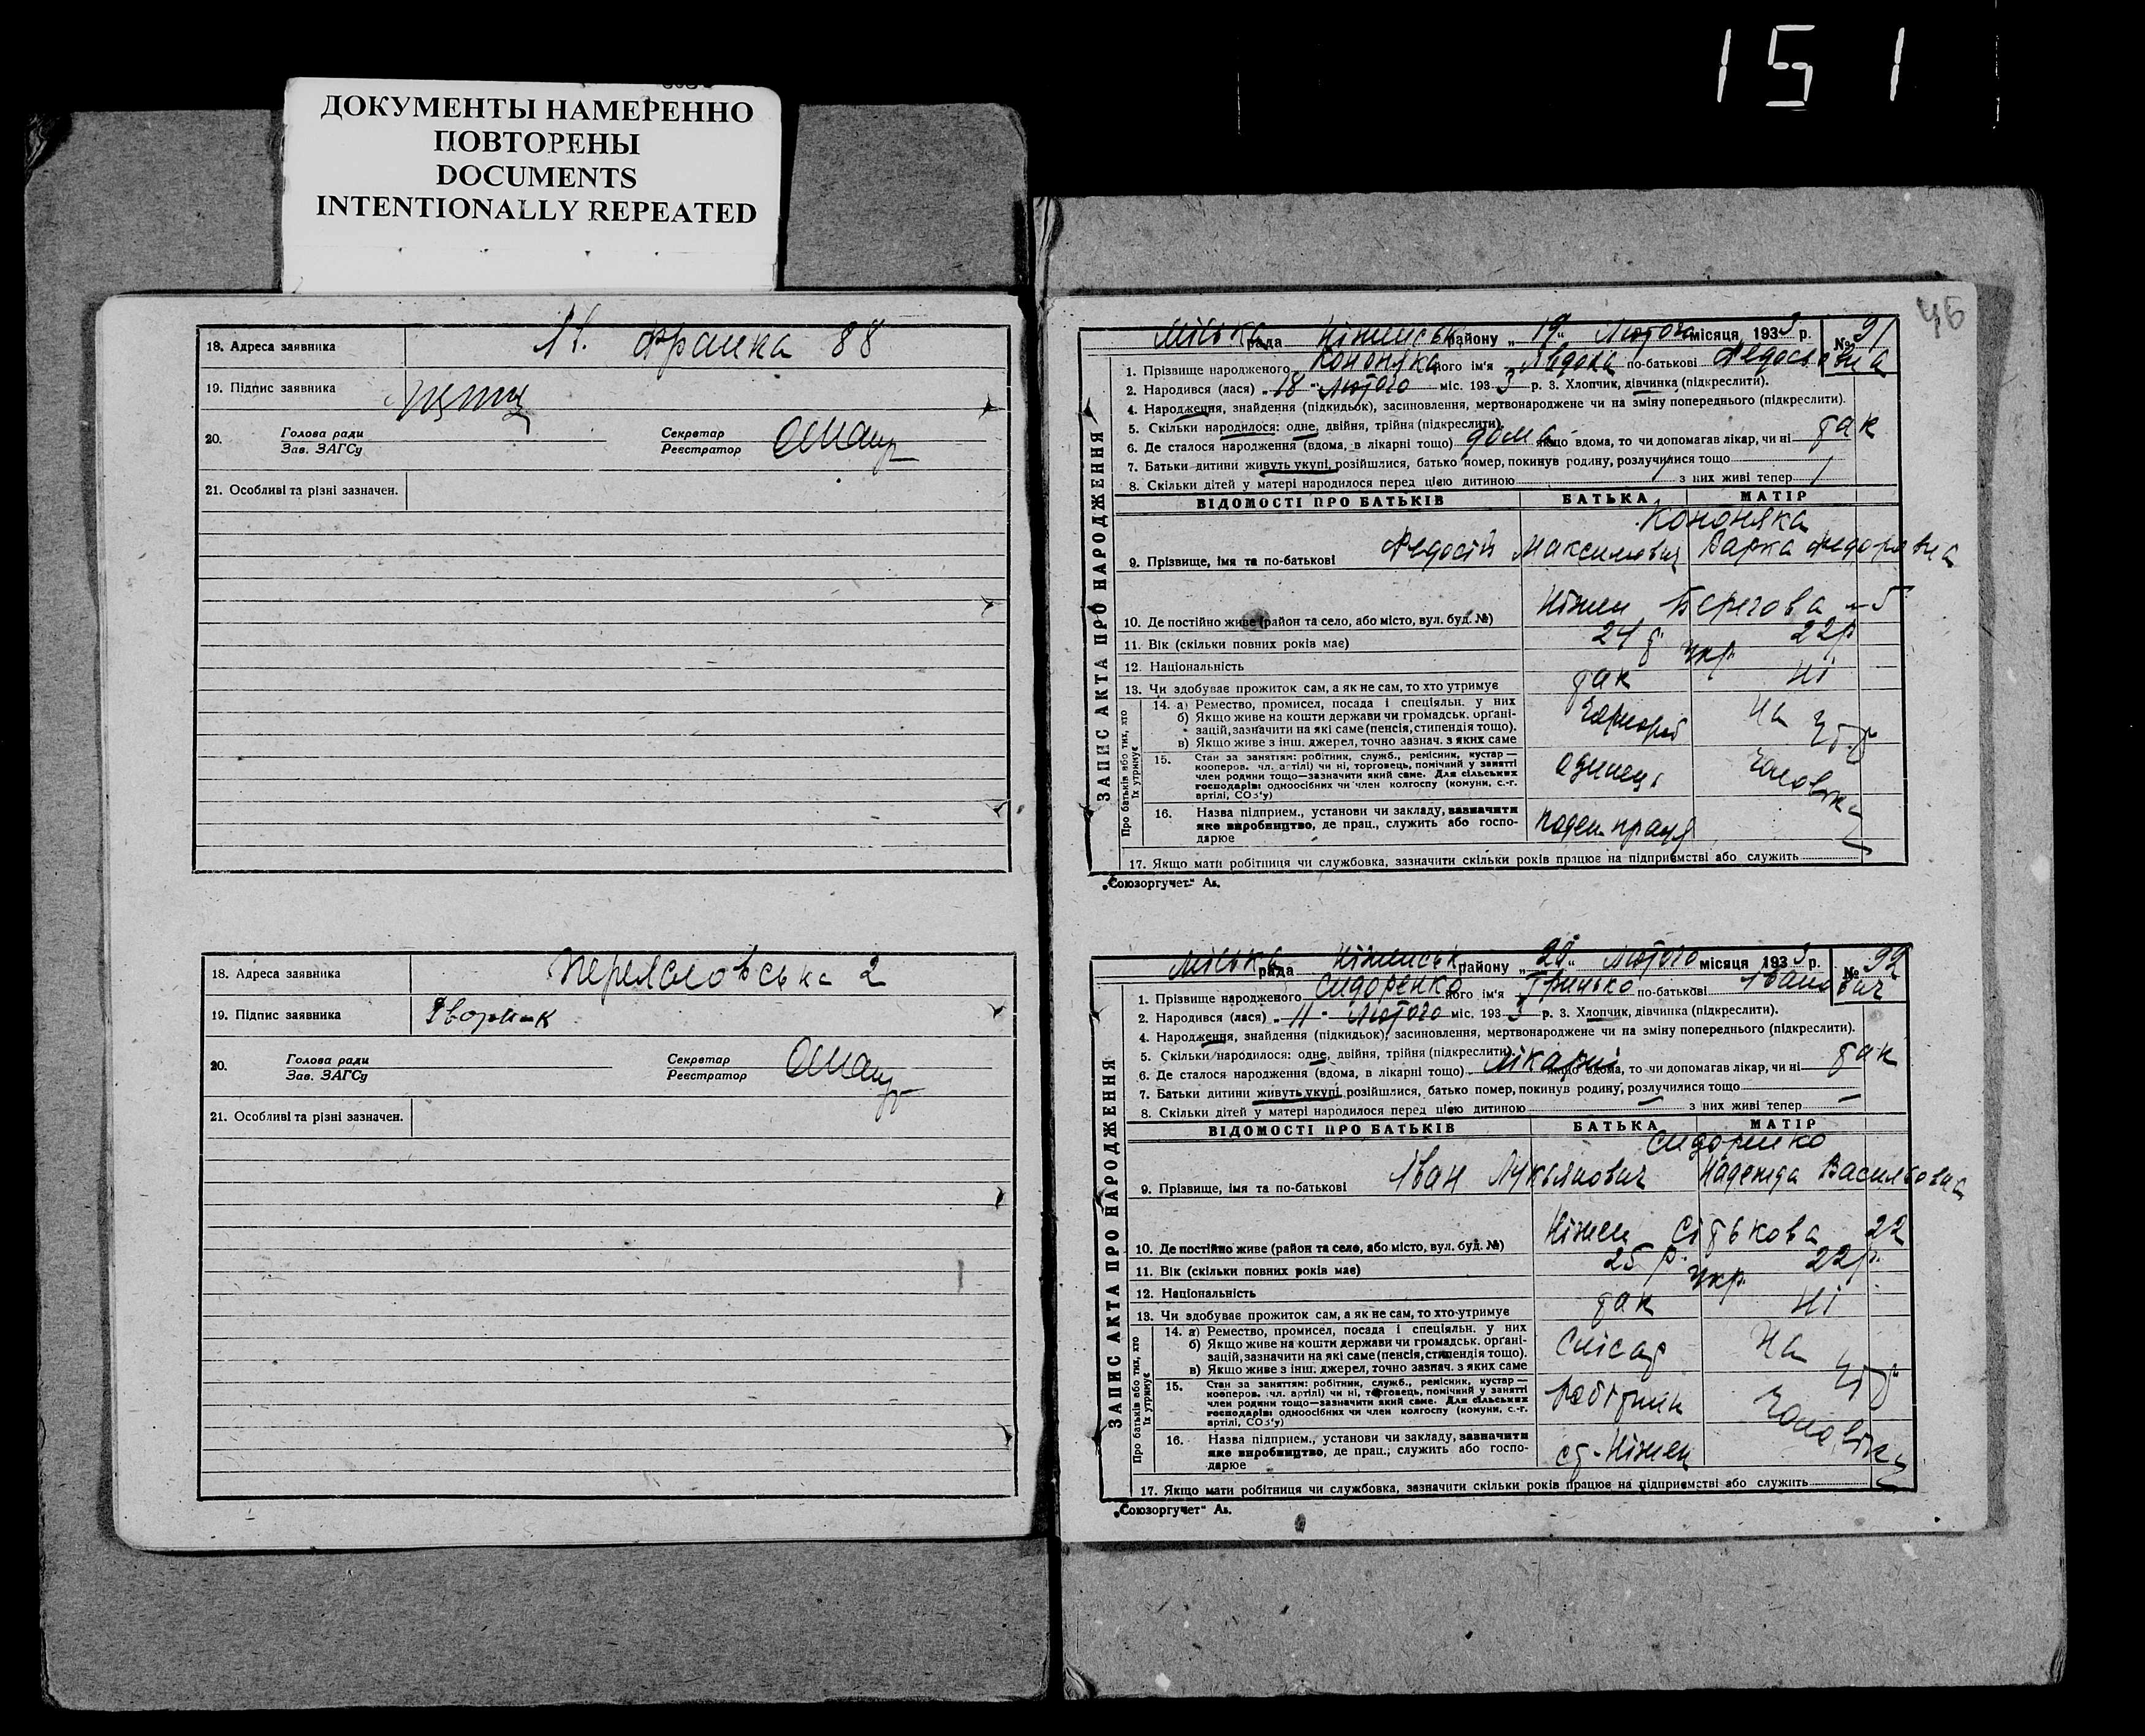 151
ДОКУМЕНТЫ НАМЕРЕННО
ПОВТОРЕНЫ
DOCUMENTS
INTENTIONALLY REPEATED
18. Адреса заявника Франка 88
19. Підпис заявника
20. Голова ради Секретар
Зав. ЗАГСу Реєстратор
21. Особливі та різні зазначен.
18. Адреса заявника Переясловська 2
19. Підпис заявника
20. Голова ради Секретар
Зав. ЗАГСу Реєстратор
21. Особливі та різні зазначен.
46
ЗАПИС АКТА ПРО НАРОДЖЕННЯ
Міська рада Ніженськ району „19“ Лютого місяця 1933 р. № 91
1. Прізвище народженого Кононяка його ім'я Явдоха по-батькові
2. Народився (лася) „18“ Лютого міс. 1933 р. 3. Хлопчик, дівчинка (підкреслити).
4. Народження, знайдення (підкидьок), засиновлення, мертвонароджене чи на зміну попереднього (підкреслити).
5. Скільки народилося: одне, двійня, трійня (підкреслити).
6. Де сталося народження (вдома, в лікарні тощо) дома якщо вдома, то чи допомагав лікар, чи ні так
7. Батьки дитини живуть укупі, розійшлися, батько помер, покинув родину, розлучилися тощо
8. Скільки дітей у матері народилося перед цією дитиною 1 з них живі тепер 1
ВІДОМОСТІ ПРО БАТЬКІВ БАТЬКА МАТІР
Кононяка
9. Прізвище, імя та по-батькові Федосій Максимович Варка Федоровна
10. Де постійно живе (район та село, або місто, вул. буд. №) Ніжен Берегова 5
11. Вік (скільки повних років має) 24 р. 22 р
12. Національність Укр.
13. Чи здобуває прожиток сам, а як не сам, то хто утримує так ні
Про батьків або тих, хто їх утримує
14. а) Ремество, промисел, посада і спеціяльн. у них
б) Якщо живе на кошти держави чи громадськ. органі-
зацій, зазначити на які саме (пенсія, стипендія тощо).
в) Якщо живе з інш. джерел, точно зазнач. з яких саме
Чорнороб На ут.
15. Стан за заняттям: робітник, служб., ремісник, кустар —
кооперов. чл. артілі) чи ні, торговець, помічний у занятті
член родини тощо—зазначити який саме. Для сільських
господарів: одноосібних чи член колгоспу (комуни, с.-г.
артілі, СОЗ'у)
Одинец. Чоловіка
16. Назва підприєм., установи чи закладу, зазначити
яке виробництво, де прац., служить або госпо-
дарює
Поден. праця
17. Якщо мати робітниця чи службовка, зазначити скільки років працює на підприємстві або служить
„Союзоргучет“ Ав.
ЗАПИС АКТА ПРО НАРОДЖЕННЯ
Міська рада Ніженськ району „20“ Лютого місяця 1933 р. № 92
1. Прізвище народженого Сидоренко його ім'я Грицько по-батькові Іванович
2. Народився (лася) „11“ Лютого міс. 1933 р. 3. Хлопчик, дівчинка (підкреслити).
4. Народження, знайдення (підкидьок), засиновлення, мертвонароджене чи на зміну попереднього (підкреслити).
5. Скільки народилося: одне, двійня, трійня (підкреслити).
6. Де сталося народження (вдома, в лікарні тощо) Лікарні якщо вдома, то чи допомагав лікар, чи ні так
7. Батьки дитини живуть укупі, розійшлися, батько помер, покинув родину, розлучилися тощо
8. Скільки дітей у матері народилося перед цією дитиною — з них живі тепер —
ВІДОМОСТІ ПРО БАТЬКІВ БАТЬКА МАТІР
Сидоренко
9. Прізвище, імя та по-батькові Іван Лукьянович Надежда Васильовна
10. Де постійно живе (район та село, або місто, вул. буд. №) Ніжен 22
11. Вік (скільки повних років має) 25 р. 22 р.
12. Національність Укр.
13. Чи здобуває прожиток сам, а як не сам, то хто утримує так ні
Про батьків або тих, хто їх утримує
14. а) Ремество, промисел, посада і спеціяльн. у них
б) Якщо живе на кошти держави чи громадськ. органі-
зацій, зазначити на які саме (пенсія, стипендія тощо).
в) Якщо живе з інш. джерел, точно зазнач. з яких саме
Слісар На ут.
15. Стан за заняттям: робітник, служб., ремісник, кустар —
кооперов. чл. артілі) чи ні, торговець, помічний у занятті
член родини тощо—зазначити який саме. Для сільських
господарів: одноосібних чи член колгоспу (комуни, с.-г.
артілі, СОЗ'у)
Робітник Чоловіка
16. Назва підприєм., установи чи закладу, зазначити
яке виробництво, де прац., служить або госпо-
дарює
ст. Ніжен
17. Якщо мати робітниця чи службовка, зазначити скільки років працює на підприємстві або служить
„Союзоргучет“ Ав.